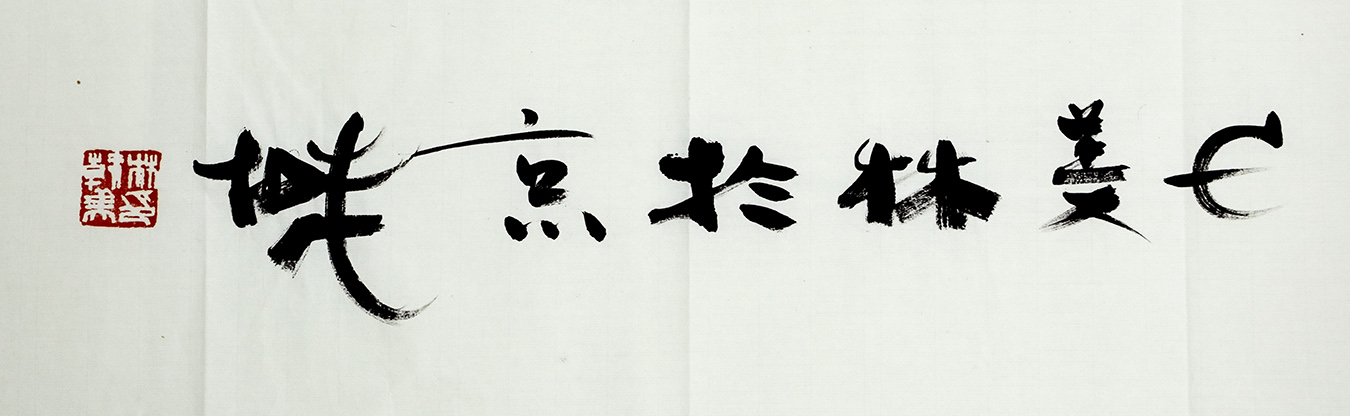 美林於京城